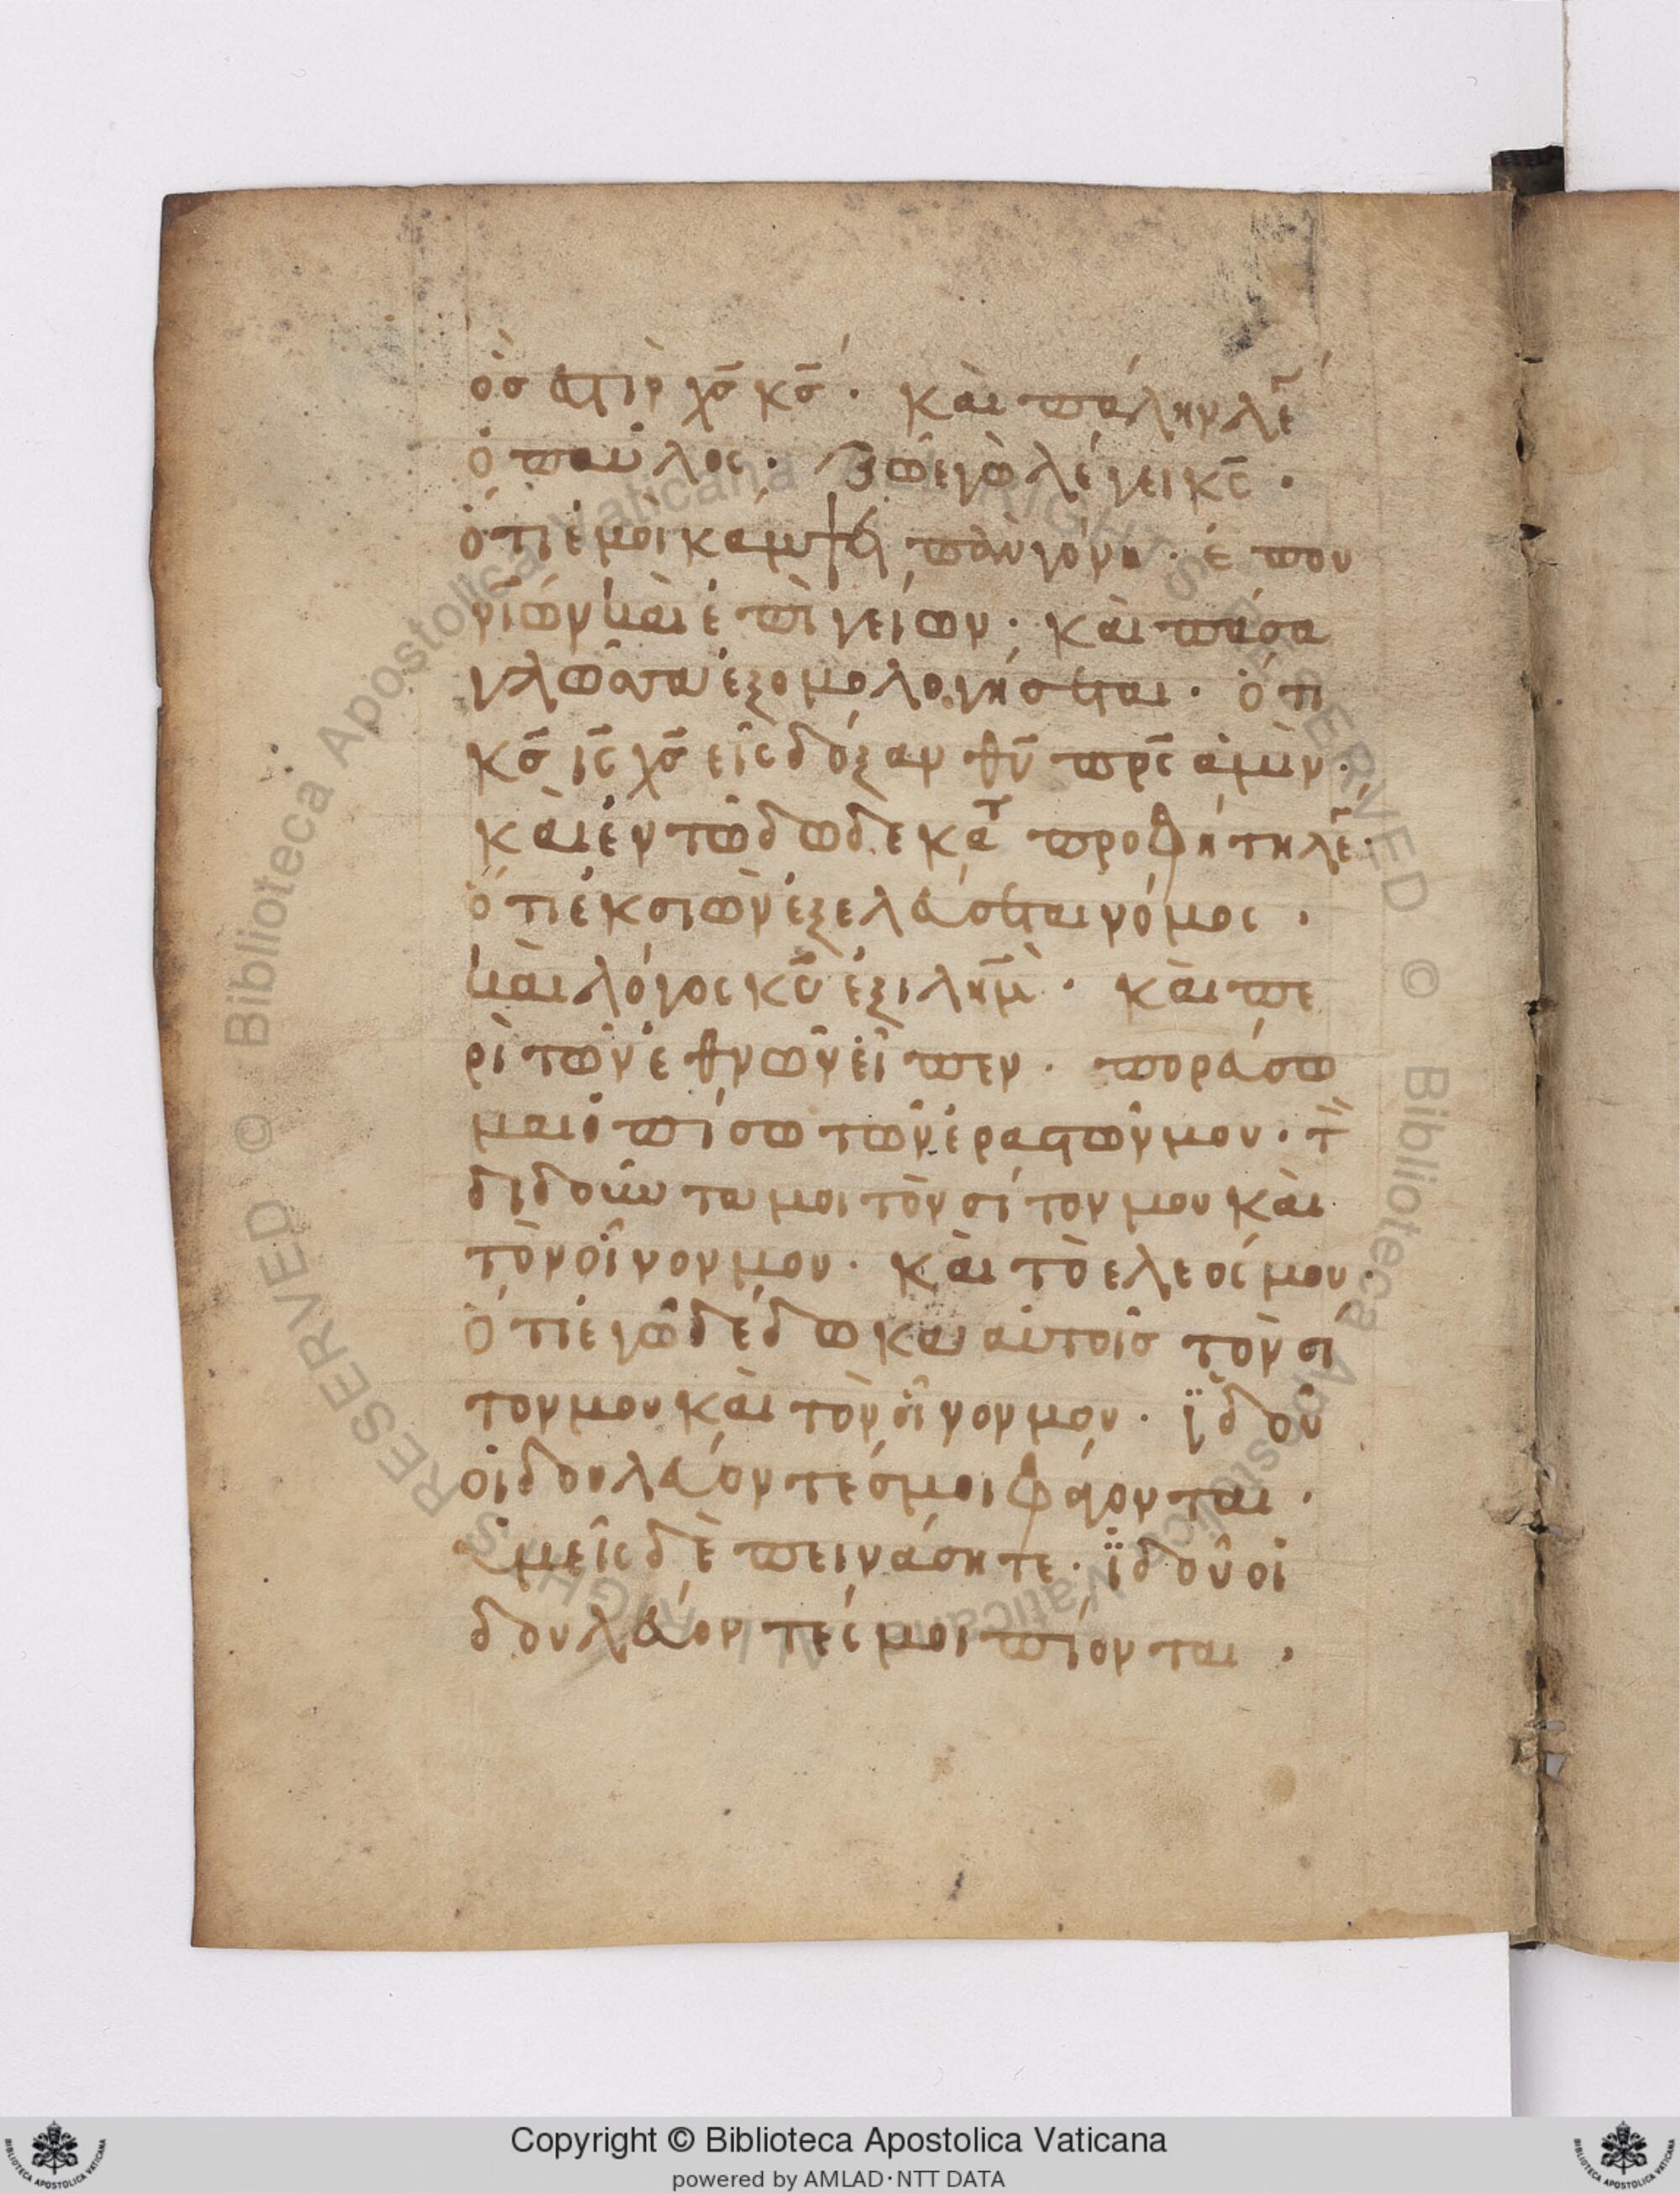 ὁσ ἐστιν χ̅σ̅ κ̅σ̅· καὶ πάλην λε͂
ὁ παῦλος· ζῶ ἐγὼ λέγει κ̅ς̅·
ὅτι ἐμοὶ κάμψει πᾶν γόνυ· ἐπου
νίων καὶ ἐπιγείων· καὶ πάσα
γλῶσσα ἐξομολογήσεται· ὅτι
κ̅σ̅ ι̅ς̅ χ̅σ̅ εἰς δόξαν θ̅υ̅ π̅ρ̅ς̅ ἀμήν·
καὶ ἐν τῶ δωδεκατ προφήτη λε͂·
ὅτι ἐκ σιὼν ἐξελεύσεται νόμος·
καὶ λόγος κ̅υ̅ ἐξ ιλη̅μ̅· καὶ πε
ρὶ τῶν ἐθνῶν εἶπεν· πορεύσω
μαι ὀπίσω τῶν ἐραστῶν μου· τ
διδούντω μοι τὸν σίτον μου καὶ
τὸν οἶνον μου· καὶ τὸ ελεός μου·
ὅτι ἐγὼ δέδωκα αὐτοῖσ τὸν σί
τον μου καὶ τὸν οἶνον μου· ἰδοῦ
οἱ δουλεύοντέσ μοι φάγονται·
ὑμεῖς δὲ πεινάσητε· ἰδοῦ οἱ
δουλεύοντές μοι πίονται·
Copyright © Biblioteca Apostolica Vaticana
powered by AMLAD·NTT DATA